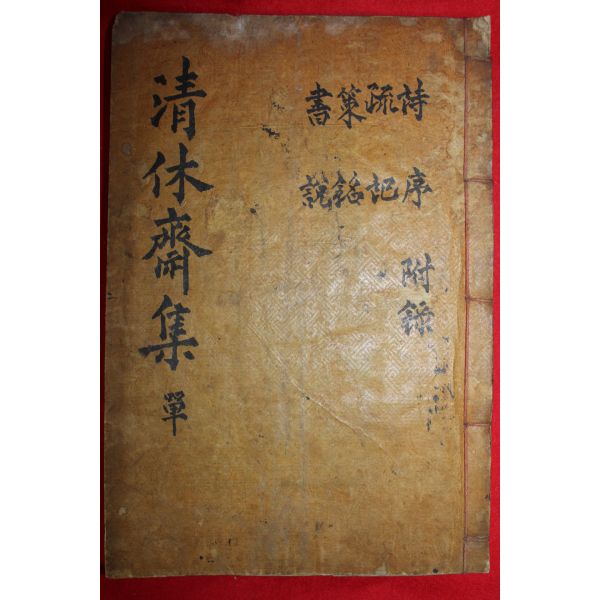 詩序附錄
疏記
策銘
書說
清休齋集單